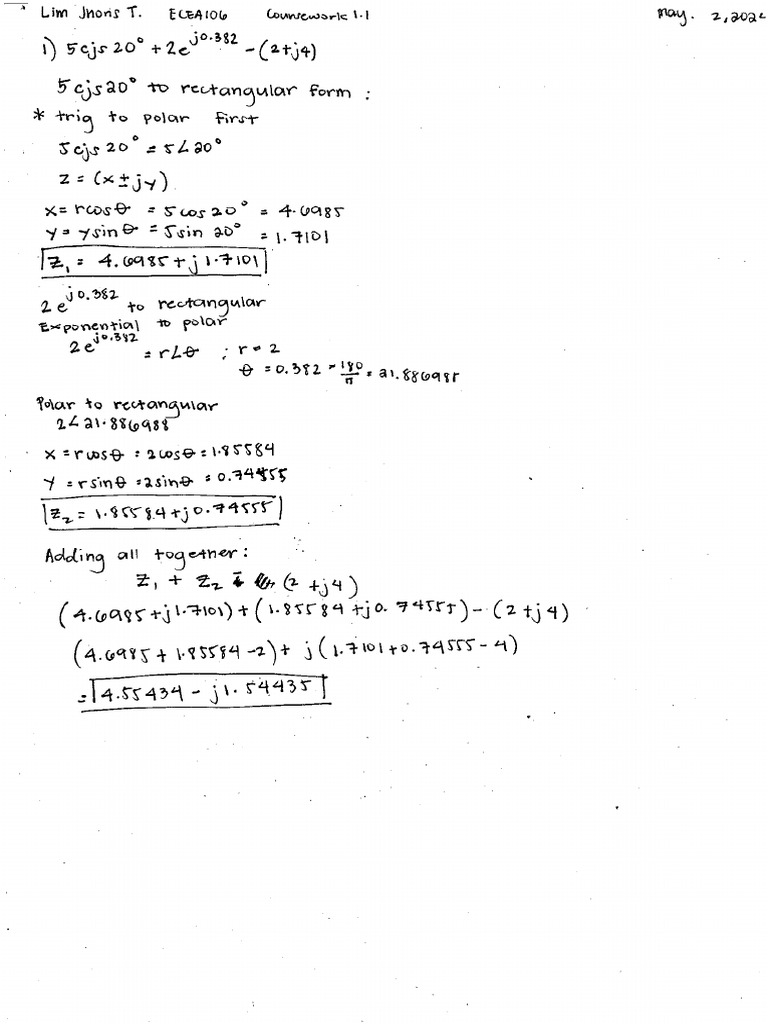 Lim Jhoris T. ECEA106 Coursework 1.1 May. 2, 202
1) 5cjs20° + 2e^j0.382 - (2+j4)
5cjs20° to rectangular form :
* trig to polar first
5cjs20° = 5∠20°
z = (x ± jy)
x = rcosθ = 5cos20° = 4.6985
y = ysinθ = 5sin 20° = 1.7101
Z₁ = 4.6985 + j1.7101
2e^j0.382 to rectangular
Exponential to polar
2e^j0.382 = r∠θ ; r = 2
θ = 0.382 × 180/π = 21.886988
Polar to rectangular
2∠21.886988
x = rcosθ = 2cosθ = 1.85584
y = rsinθ = 2sinθ = 0.74555
Z₂ = 1.85584 + j0.74555
Adding all together:
Z₁ + Z₂ - (2 + j4)
(4.6985 + j1.7101) + (1.85584 + j0.74555) - (2 + j4)
(4.6985 + 1.85584 - 2) + j(1.7101 + 0.74555 - 4)
= 4.55434 - j1.54435